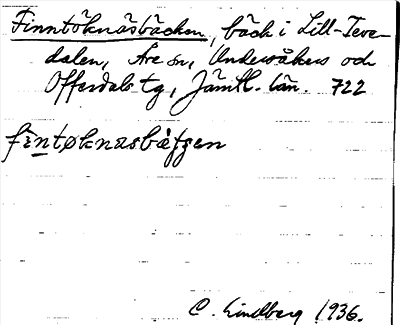 Finntöknäsbäcken, bäck i Lill-Teve-
dalen, Åre sn, Undersåkers och
Offerdals tg, Jämtl. län. 722
fintøknasbæ̀tsen
C. Lindberg 1936.